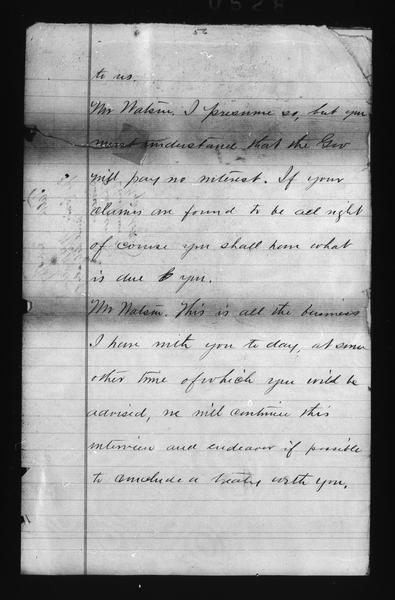 56
to us.
Mr Watson. I presume so, but you
must understand that the Gov
will pay no interest. If your
claims are found to be all right
of course you shall have what
is due to you.
Mr Watson. This is all the business
I have with you to day, at some
other time of which you will be
advised, we will continue this
interview and endeavor if possible
to conclude a treaty with you.